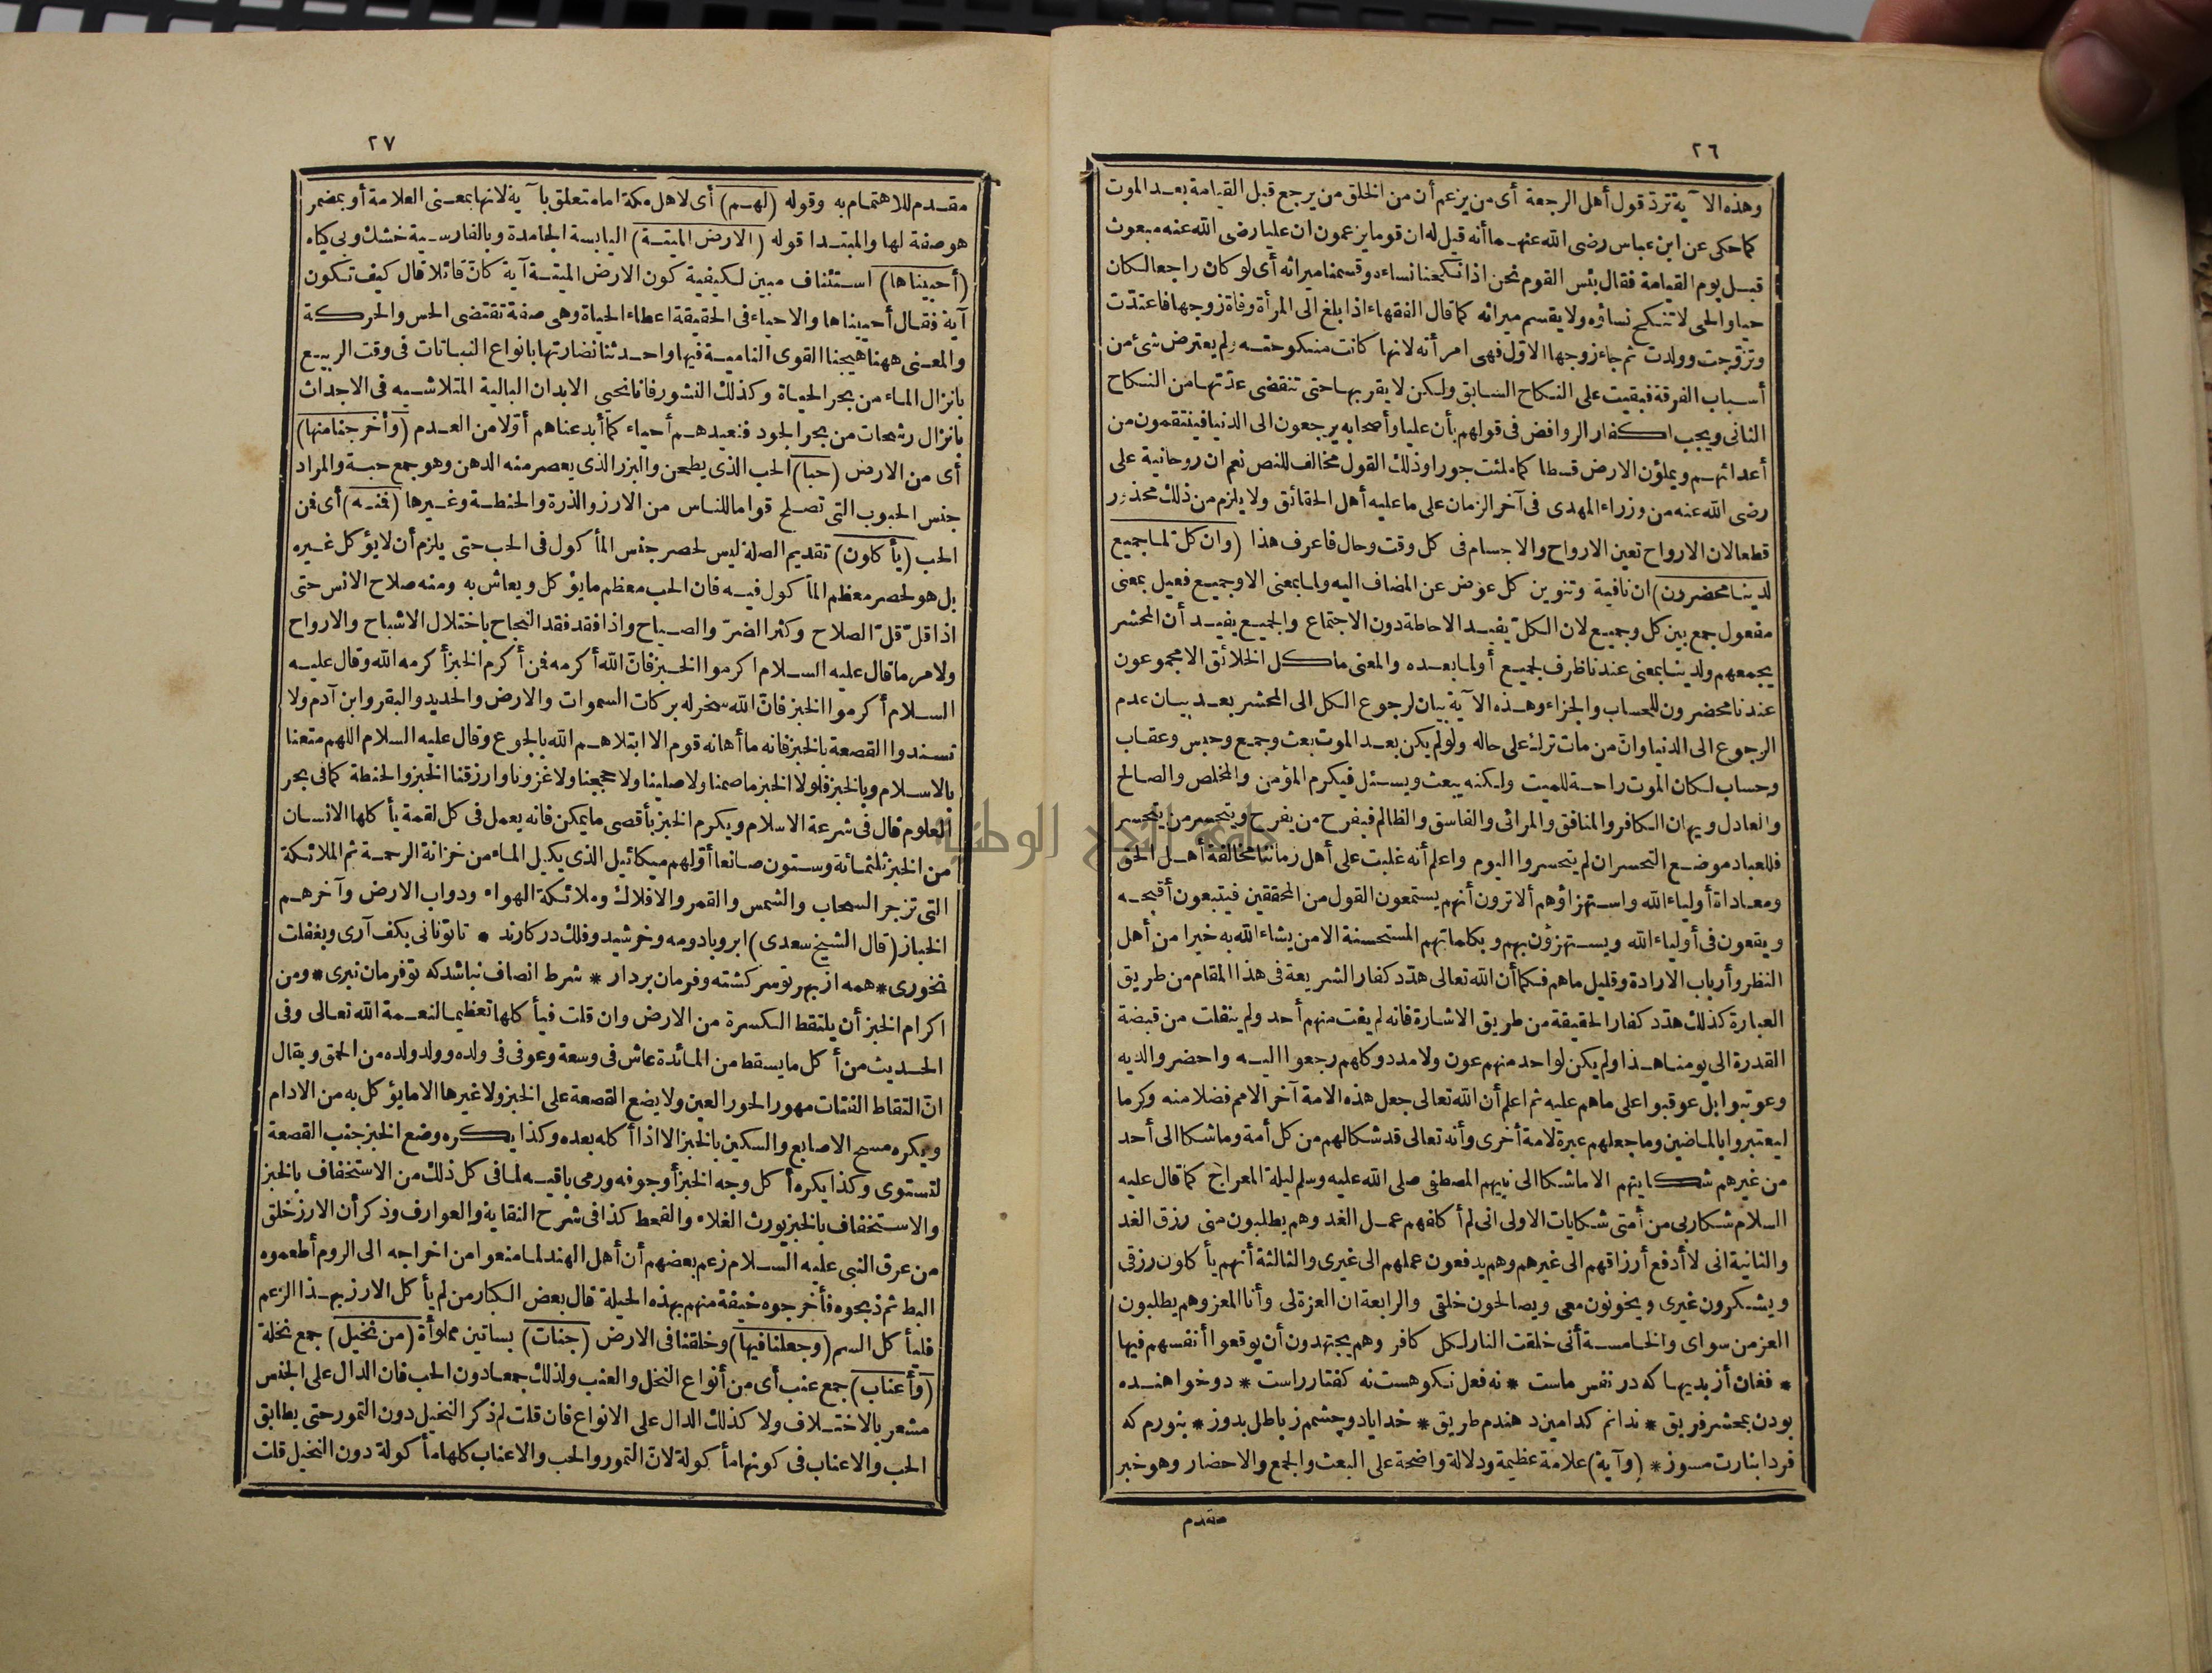 ٢٦
وهذه الآية تردّ قول أهل الرجعة أى من يزعم أن من الخلق من يرجع قبل القيامة بعد الموت
كما حكى عن ابن عباس رضى الله عنهما أنه قيل له ان قوما يزعمون ان عليا رضى الله عنه مبعوث
قبل يوم القيامة فقال بئس القوم نحن اذا نكحنا نساءه وقسمنا ميراثه أى لو كان راجعا لكان
حيا والحى لا تنكح نساؤه ولا يقسم ميراثه كما قال الفقهاء اذا بلغ الى المرأة وفاة زوجها فاعتدّت
وتزوّجت وولدت ثم جاء زوجها الاوّل فهى امرأته لانها كانت منكوحته ولم يعترض شئ من
أسباب الفرقة فبقيت على النكاح السابق ولكن لا يقربها حتى تنقضى عدّتها من النكاح
الثانى ويجب اكفار الروافض فى قولهم بأن عليا وأصحابه يرجعون الى الدنيا فينتقمون من
أعدائهم ويملؤن الارض قسطا كما ملئت جورا وذلك القول مخالف للنص نعم ان روحانية على
رضى الله عنه من وزراء المهدى فى آخر الزمان على ما عليه أهل الحقائق ولا يلزم من ذلك محذور
قطعا لان الارواح تعين الارواح والاجسام فى كل وقت وحال فاعرف هذا (وان كلّ لما جميع
لدينا محضرون) ان نافية وتنوين كل عوض عن المضاف اليه ولما بمعنى الا وجميع فعيل بمعنى
مفعول جمع بين كل وجميع لان الكلّ يفيد الاحاطة دون الاجتماع والجميع يفيد أن المحشر
يجمعهم ولدينا بمعنى عندنا ظرف لجميع أو لما بعده والمعنى ما كل الخلائق الا مجموعون
عندنا محضرون للحساب والجزاء وهذه الآية بيان لرجوع الكل الى المحشر بعد بيان عدم
الرجوع الى الدنيا وانّ من مات ترك على حاله ولو لم يكن بعد الموت بعث وجمع وحبس وعقاب
وحساب لكان الموت راحة للميت ولكنه يبعث ويسئل فيكرم المؤمن والمخلص والصالح
والعادل ويهان الكافر والمنافق والمرائى والفاسق والظالم فيفرح من يفرح ويتحسر من يتحسر
فللعباد موضع التحسر ان لم يتحسروا اليوم واعلم أنه غلبت على أهل زماننا مخالفة أهل الحق
ومعاداة أولياء الله واستهزاؤهم ألا ترون أنهم يستمعون القول من المحققين فيتبعون أقبحه
ويقعون فى أولياء الله ويستهزؤن بهم وبكلماتهم المستحسنة الا من يشاء الله به خيرا من أهل
النظر وأرباب الارادة وقليل ما هم فكما أن الله تعالى هدّد كفار الشريعة فى هذا المقام من طريق
العبارة كذلك هدّد كفار الحقيقة من طريق الاشارة فانه لم يفت منهم أحد ولم ينفلت من قبضة
القدرة الى يومنا هذا ولم يكن لواحد منهم عون ولا مدد وكلهم رجعوا اليه واحضروا لديه
وعوتبوا بل عوقبوا على ما هم عليه ثم اعلم أن الله تعالى جعل هذه الامة آخر الامم فضلا منه وكرما
ليعتبروا بالماضين وما جعلهم عبرة لامة أخرى وأنه تعالى قد شكا لهم من كل أمة وما شكا الى أحد
من غيرهم شكايتهم الا ما شكا الى نبيهم المصطفى صلى الله عليه وسلم ليلة المعراج كما قال عليه
السلام شكا ربى من أمتى شكايات الاولى انى لم أكلفهم عمل الغد وهم يطلبون منى رزق الغد
والثانية انى لا أدفع أرزاقهم الى غيرهم وهم يدفعون عملهم الى غيرى والثالثة أنهم يأكلون رزقى
ويشكرون غيرى ويخونون معى ويصالحون خلقى والرابعة ان العزة لى وأنا المعز وهم يطلبون
العز من سواى والخامسة أنى خلقت النار لكل كافر وهم يجتهدون أن يوقعوا أنفسهم فيها
* فغان أز بديها كه در نفس ماست * نه فعل نكو هست نه كفتار راست * دو خواهنده
بودن بمحشر فريق * ندانم كدامين دهندم طريق * خدايا دو چشمم ز باطل بدوز * بنورم كه
فردا بنارت مسوز * (وآية) علامة عظيمة ودلالة واضحة على البعث والجمع والاحضار وهو خبر
مقدم
٢٧
مقدم للاهتمام به وقوله (لهم) أى لاهل مكة اما متعلق بآية لانها بمعنى العلامة أو بمضمر
هو صفة لها والمبتدا قوله (الارض الميتة) اليابسة الجامدة وبالفارسية خشك وبى كياه
(أحييناها) استئناف مبين لكيفية كون الارض الميتة آية كانّ قائلا قال كيف تكون
آية فقال أحييناها والاحياء فى الحقيقة اعطاء الحياة وهى صفة تقتضى الحس والحركة
والمعنى ههنا هيجنا القوى النامية فيها وأحدثنا نضارتها بانواع النباتات فى وقت الربيع
بانزال الماء من بحر الحياة وكذلك النشور فانا نحيى الابدان البالية المتلاشيه فى الاجداث
بانزال رشحات من بحر الجود فنعيدهم أحياء كما أبدعناهم أوّلا من العدم (وأخرجنا منها)
أى من الارض (حبا) الحب الذى يطحن والبزر الذى يعصر منه الدهن وهو جمع حبة والمراد
جنس الحبوب التى تصلح قواما للناس من الارز والذرة والحنطة وغيرها (فمنه) أى فمن
الحب (يأكلون) تقديم الصلة ليس لحصر جنس المأكول فى الحب حتى يلزم أن لا يؤكل غيره
بل هو لحصر معظم المأكول فيه فان الحب معظم ما يؤكل ويعاش به ومنه صلاح الانس حتى
اذا قلّ قلّ الصلاح وكثر الضرّ والصياح واذا فقد فقد النجاح باختلال الاشباح والارواح
ولامر ما قال عليه السلام اكرموا الخبز فانّ الله أكرمه فمن أكرم الخبز أكرمه الله وقال عليه
السلام أكرموا الخبز فانّ الله سخر له بركات السموات والارض والحديد والبقر وابن آدم ولا
تسندوا القصعة بالخبز فانه ما أهانه قوم الا ابتلاهم الله بالجوع وقال عليه السلام اللهم متعنا
بالاسلام وبالخبز فلولا الخبز ما صمنا ولا صلينا ولا حججنا ولا غزونا وارزقنا الخبز والحنطة كما فى بحر
العلوم قال فى شرعة الاسلام ويكرم الخبز بأقصى ما يمكن فانه يعمل فى كل لقمة يأكلها الانسان
من الخبز ثلثمائة وستون صانعا أوّلهم ميكائيل الذى يكيل الماء من خزانة الرحمة ثم الملائكة
التى تزجر السحاب والشمس والقمر والافلاك وملائكة الهواء ودواب الارض وآخرهم
الخباز (قال الشيخ سعدى) ابر وباد ومه وخرشيد وفلك در كارند * تا تو نانى بكف آرى وبغفلت
نخورى * همه از بهر تو سر كشته وفرمان بردار * شرط انصاف نباشد كه تو فرمان نبرى * ومن
اكرام الخبز أن يلتقط الكسرة من الارض وان قلت فيأكلها تعظيما لنعمة الله تعالى وفى
الحديث من أكل ما يسقط من المائدة عاش فى وسعة وعوفى فى ولده وولد ولده من الحمق ويقال
انّ التقاط الفتات مهور الحور العين ولا يضع القصعة على الخبز ولا غيرها الا ما يؤكل به من الادام
ويكره مسح الاصابع والسكين بالخبز الا اذا أكله بعده وكذا يكره وضع الخبز جنب القصعة
لتستوى وكذا يكره أكل وجه الخبز أو جوفه ورمى باقيه لما فى كل ذلك من الاستخفاف بالخبز
والاستخفاف بالخبز يورث الغلاء والقحط كذا فى شرح النقاية والعوارف وذكر أن الارز خلق
من عرق النبى عليه السلام زعم بعضهم أن أهل الهند لما منعوا من اخراجه الى الروم أطعموه
البط ثم ذبحوه فأخرجوه خيفة منهم بهذه الحيلة قال بعض الكبار من لم يأكل الارز بهذا الزعم
فليأكل السم (وجعلنا فيها) وخلقنا فى الارض (جنات) بساتين مملوأة (من نخيل) جمع نخلة
(وأعناب) جمع عنب أى من أنواع النخل والعنب ولذلك جمعا دون الحب فان الدال على الجنس
مشعر بالاختلاف ولا كذلك الدال على الانواع فان قلت لم ذكر النخيل دون التمور حتى يطابق
الحب والاعناب فى كونها مأكولة لانّ التمور والحب والاعناب كلها مأكولة دون النخيل قلت